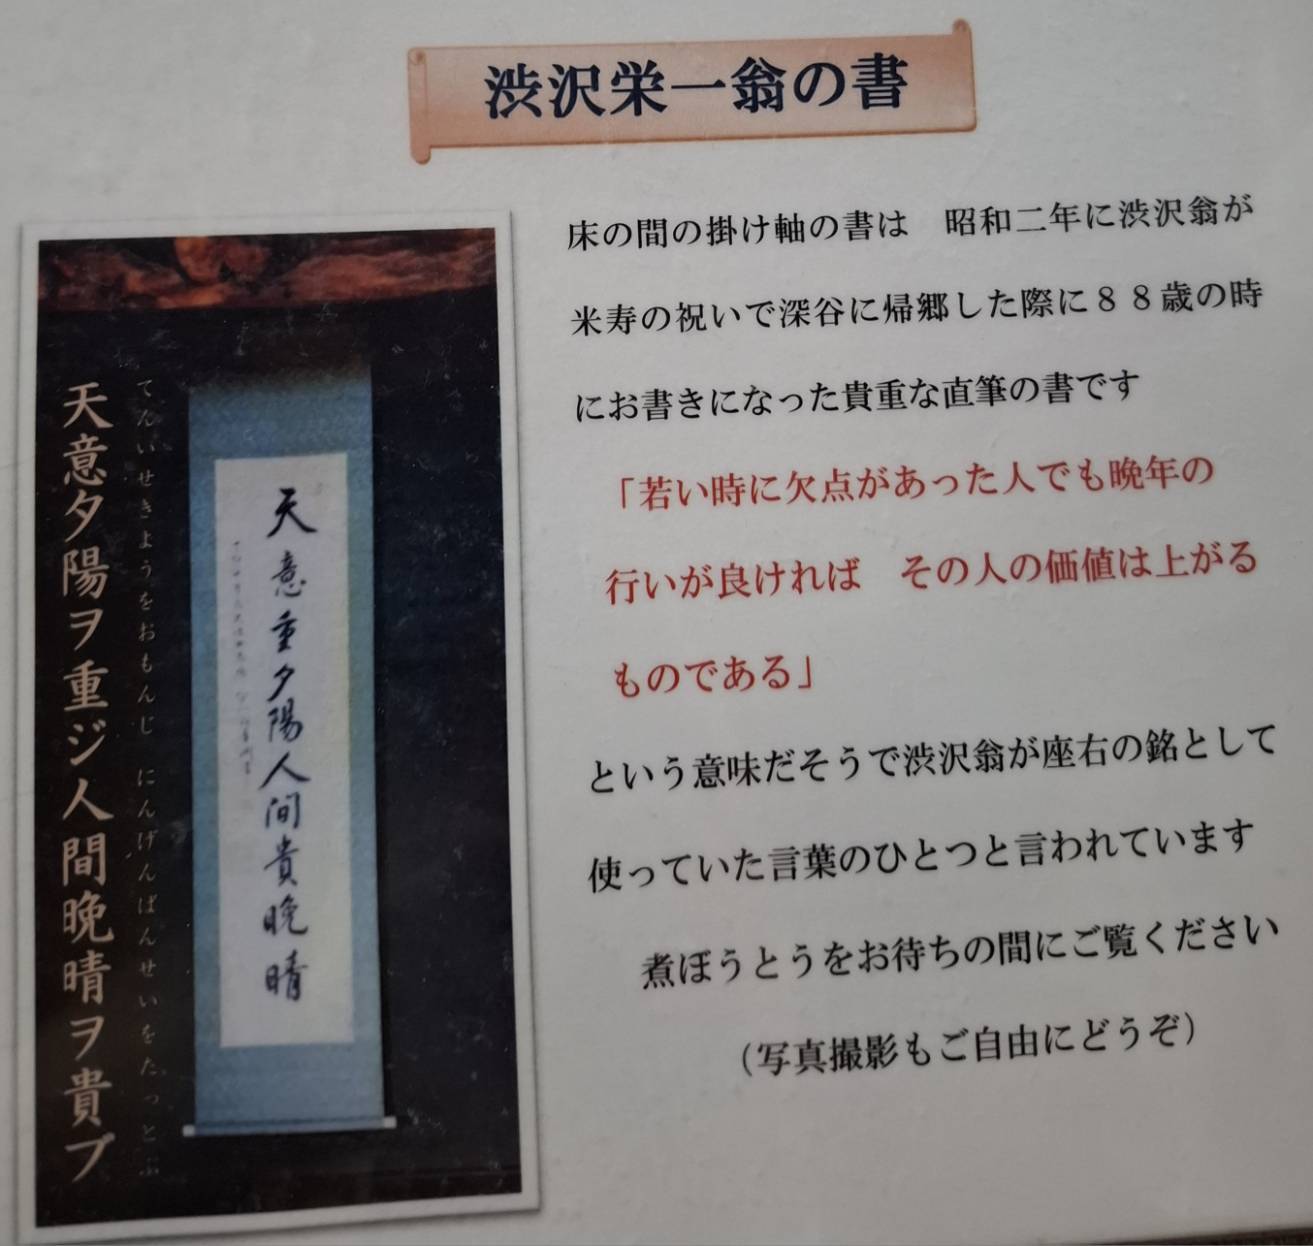 渋沢栄一翁の書
床の間の掛け軸の書は　昭和二年に渋沢翁が
米寿の祝いで深谷に帰郷した際に８８歳の時
にお書きになった貴重な直筆の書です
「若い時に欠点があった人でも晩年の
行いが良ければ　その人の価値は上がる
ものである」
という意味だそうで渋沢翁が座右の銘として
使っていた言葉のひとつと言われています
煮ぼうとうをお待ちの間にご覧ください
（写真撮影もご自由にどうぞ）
天意重夕陽人間貴晩晴
てんいせきようをおもんじ　にんげんばんせいをたっとぶ
天意夕陽ヲ重ジ人間晩晴ヲ貴ブ